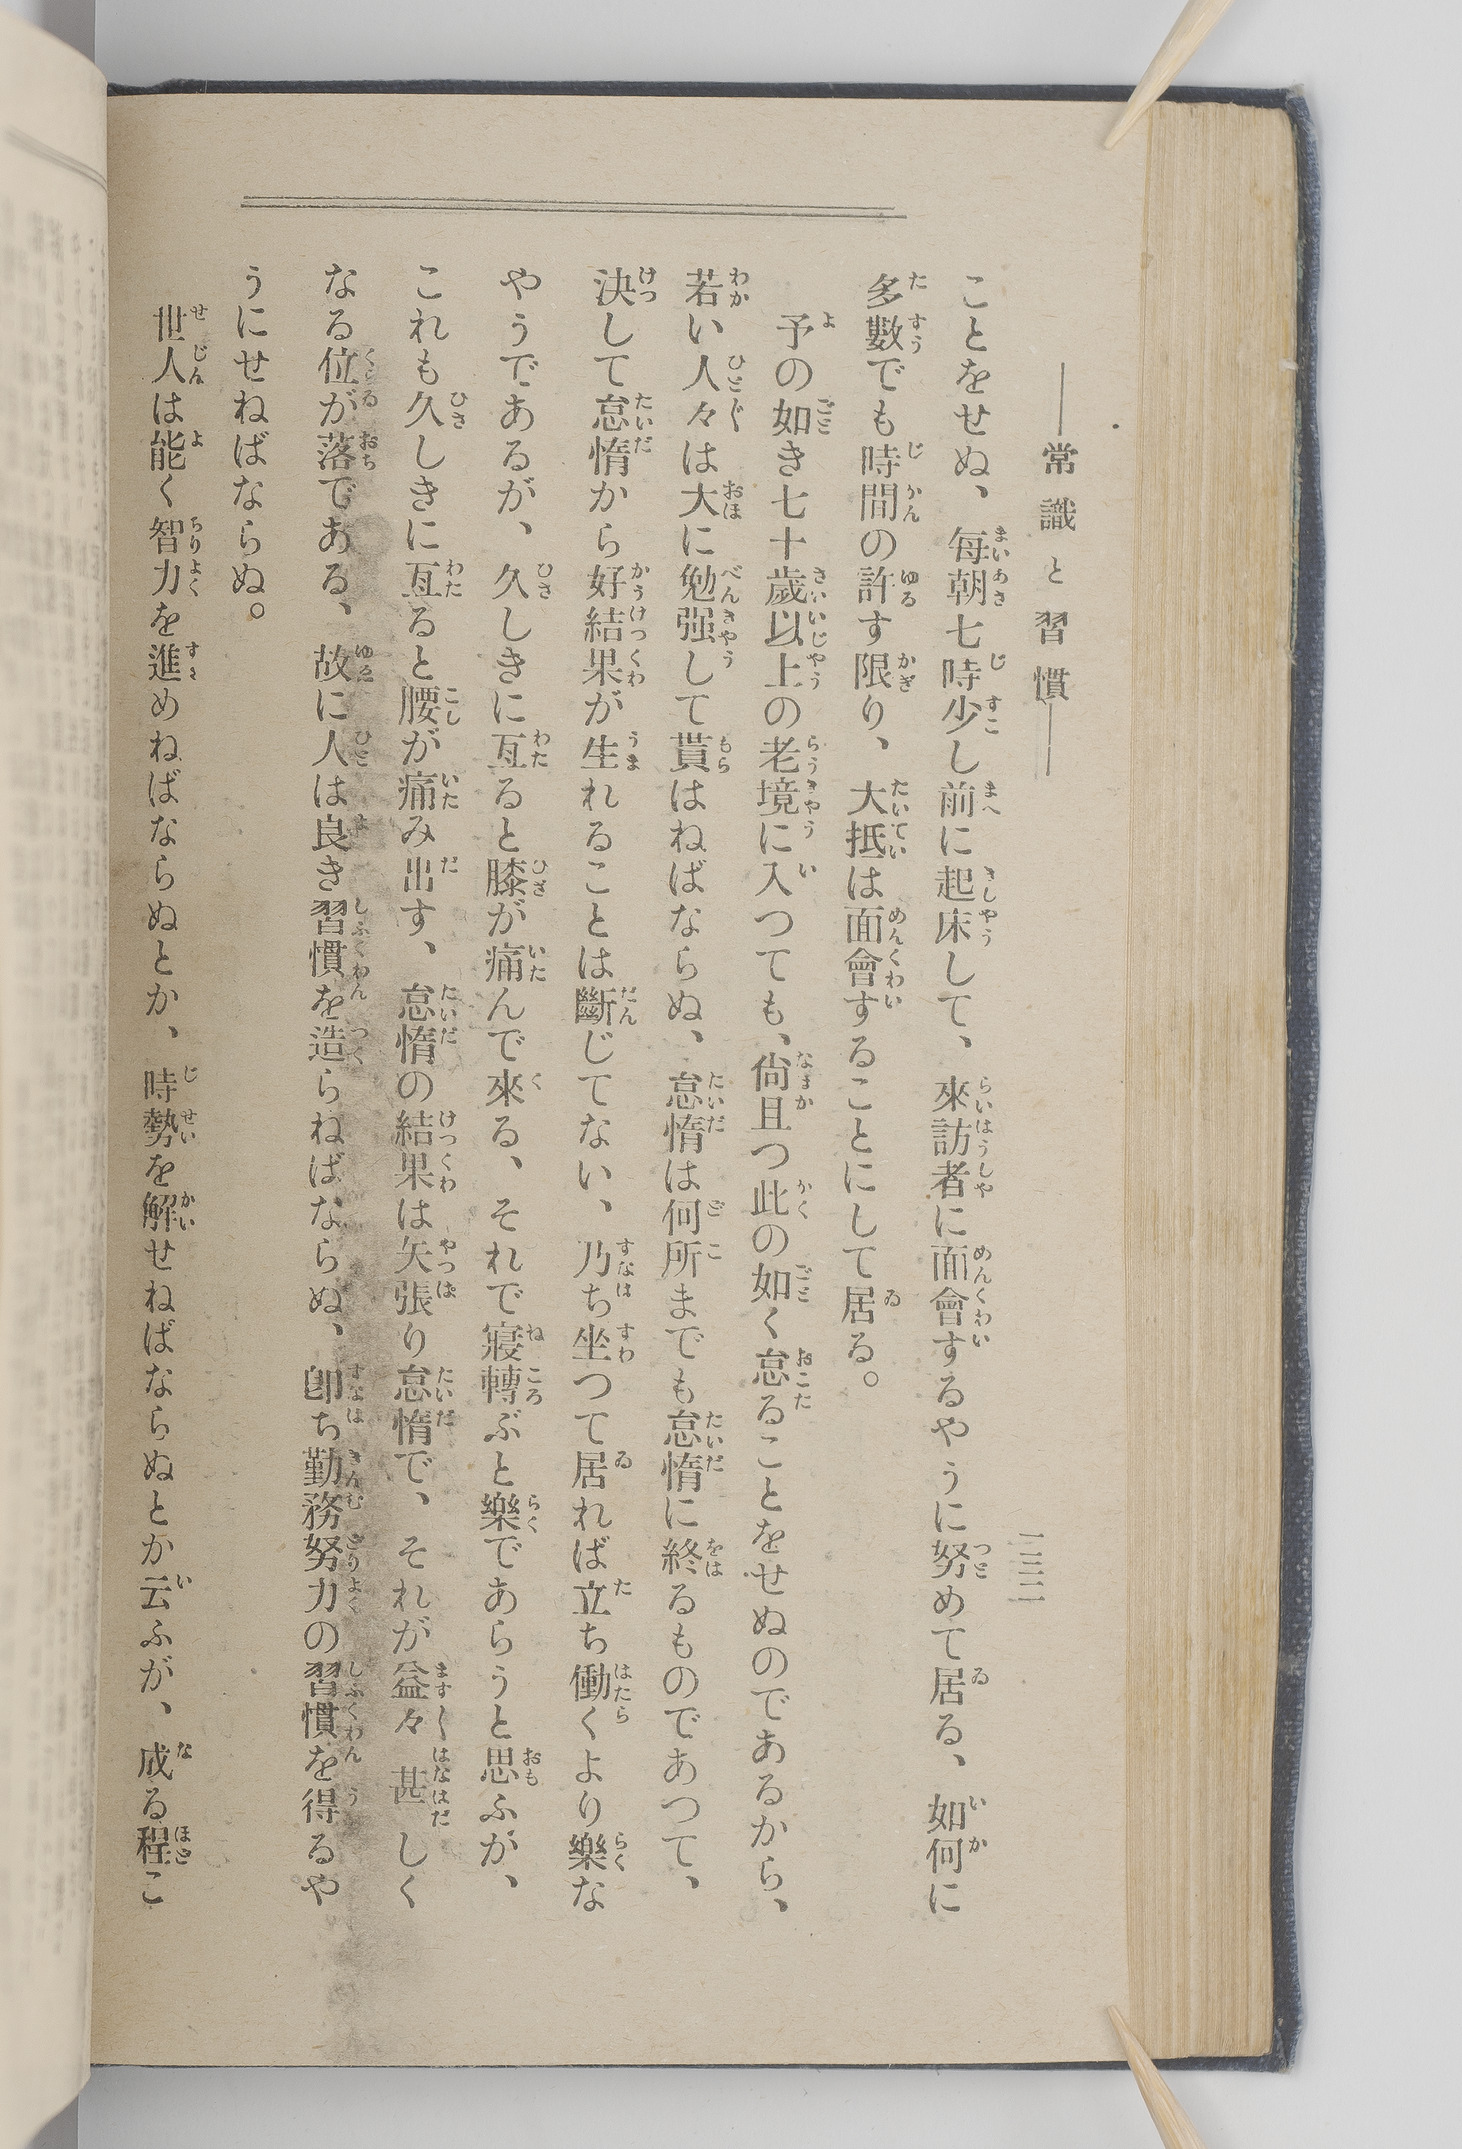 ――常識と習慣――
一三二
ことをせぬ、毎朝七時少し前に起床して、來訪者に面會するやうに努めて居る、如何に
多數でも時間の許す限り、大抵は面會することにして居る。
予の如き七十歲以上の老境に入つても、尙且つ此の如く怠ることをせぬのであるから、
若い人々は大に勉强して貰はねばならぬ、怠惰は何所までも怠惰に終るものであつて、
決して怠惰から好結果が生れることは斷じてない、乃ち坐つて居れば立ち働くより樂な
やうであるが、久しきに亙ると膝が痛んで來る、それで寢轉ぶと樂であらうと思ふが、
これも久しきに亙ると腰が痛み出す、怠惰の結果は矢張り怠惰で、それが益々甚しく
なる位が落である、故に人は良き習慣を造らねばならぬ、卽ち勤務努力の習慣を得るや
うにせねばならぬ。
世人は能く智力を進めねばならぬとか、時勢を解せねばならぬとか云ふが、成る程こ